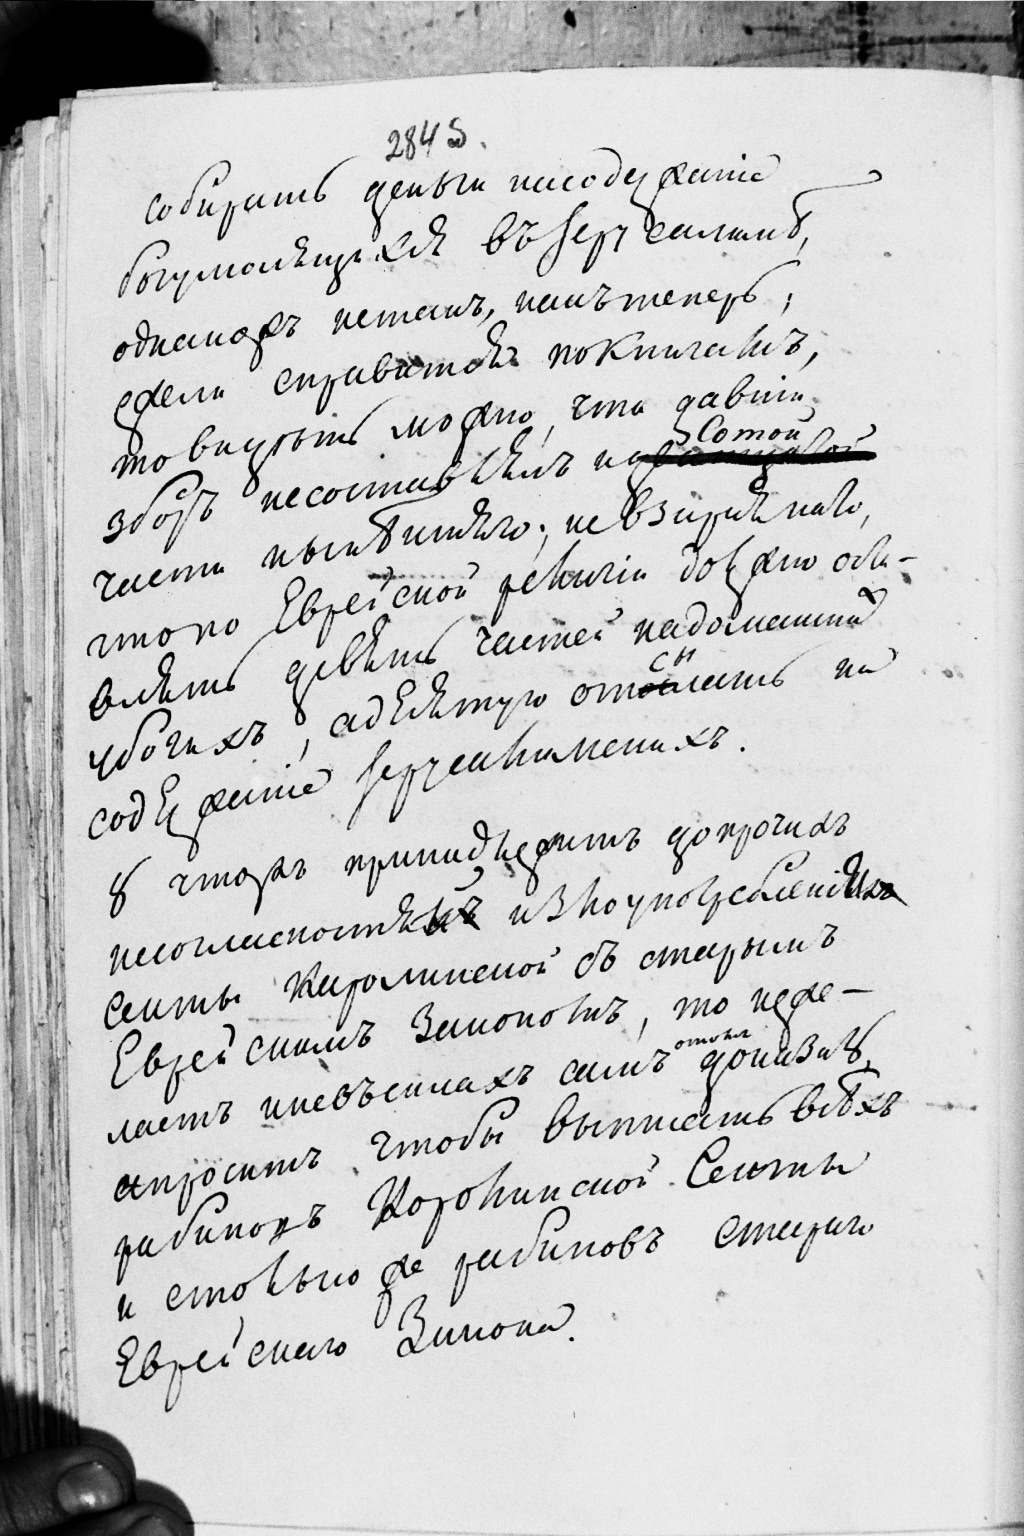 284 S.
собирать деньги насодержание
богумолящихся въ Іерусалимѣ,
однакожъ нетакъ, какътеперь,
ежели справится покнигамъ,
то видѣть можно, что давній
Сотой
зборъ несоставлялъ и
части нынѣшняго; невзирая нато,
что по Еврейской религіи должно оста-
влять девять частей надомашнихъ
сы
убогихъ, адесятую отослать на
содержание Іерусалимскихъ.
8 чтожъ принадлежитъ допрочихъ
несогласностей излоупотребленій
Секты Каролинской съ старымъ
Еврейскимъ Закономъ, то неже-
отомъ
лаетъ иневъсилахъ самъ доказать,
апроситъ чтобы выписать всѣхъ
рабиновъ Королинской Секты
и столько же рабиновъ стараго
Еврейскаго Закона.